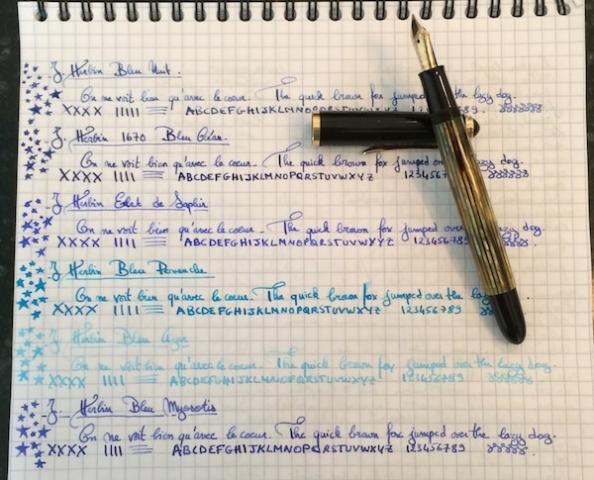 J. Herbin Bleu Nuit.
On ne voit bien qu'avec le coeur. The quick brown fox jumped over the lazy dog.
XXXX IIII ABCDEFGHIJKLMNOPQRSTUVWXYZ
J. Herbin 1670 Bleu Océan.
On ne voit bien qu'avec le coeur. The quick brown fox jumped over the lazy dog.
XXXX IIII ABCDEFGHIJKLMNOPQRSTUVWXYZ 1234567
J. Herbin Eclat de Saphir
On ne voit bien qu'avec le coeur. The quick brown fox jumped over the lazy dog.
XXXX IIII ABCDEFGHIJKLMNOPQRSTUVWXYZ 123456789
J. Herbin Bleu Pervenche
On ne voit bien qu'avec le coeur. The quick brown fox jumped over the
XXXX IIII ABCDEFGHIJKLMNOPQRSTUVWXYZ 123456789
J. Herbin Bleu Azur
On ne voit bien qu'avec le coeur. The quick brown fox jumped over the lazy dog.
XXXX IIII ABCDEFGHIJKLMNOPQRSTUVWXYZ 123456789
J. Herbin Bleu Myosotis
On ne voit bien qu'avec le coeur. The quick brown fox jumped over the lazy dog.
XXXX IIII ABCDEFGHIJKLMNOPQRSTUVWXYZ 123456789